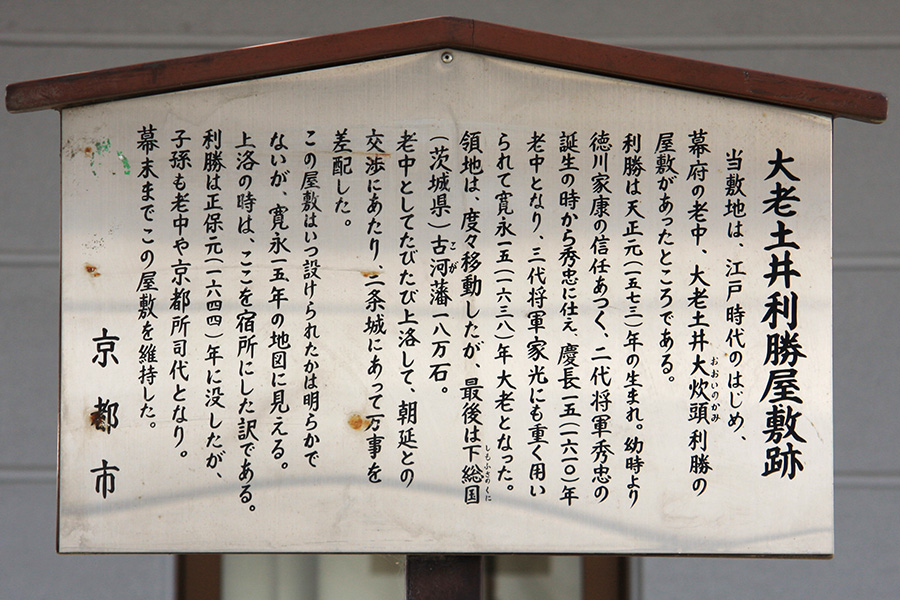 大老土井利勝屋敷跡
当敷地は、江戸時代のはじめ、
幕府の老中、大老土井大炊頭利勝の
おおいのかみ
屋敷があったところである。
利勝は天正元(一五七三)年の生まれ。幼時より
徳川家康の信任あつく、二代将軍秀忠の
誕生の時から秀忠に仕え、慶長一五(一六一〇)年
老中となり、三代将軍家光にも重く用い
られて寛永一五(一六三八)年大老となった。
領地は、度々移動したが、最後は下総国
しもふさのくに
(茨城県)古河藩一八万石。
こが
老中としてたびたび上洛して、朝廷との
交渉にあたり、二条城にあって万事を
差配した。
この屋敷はいつ設けられたかは明らかで
ないが、寛永一五年の地図に見える。
上洛の時は、ここを宿所にした訳である。
利勝は正保元(一六四四)年に没したが、
子孫も老中や京都所司代となり。
幕末までこの屋敷を維持した。
京都市